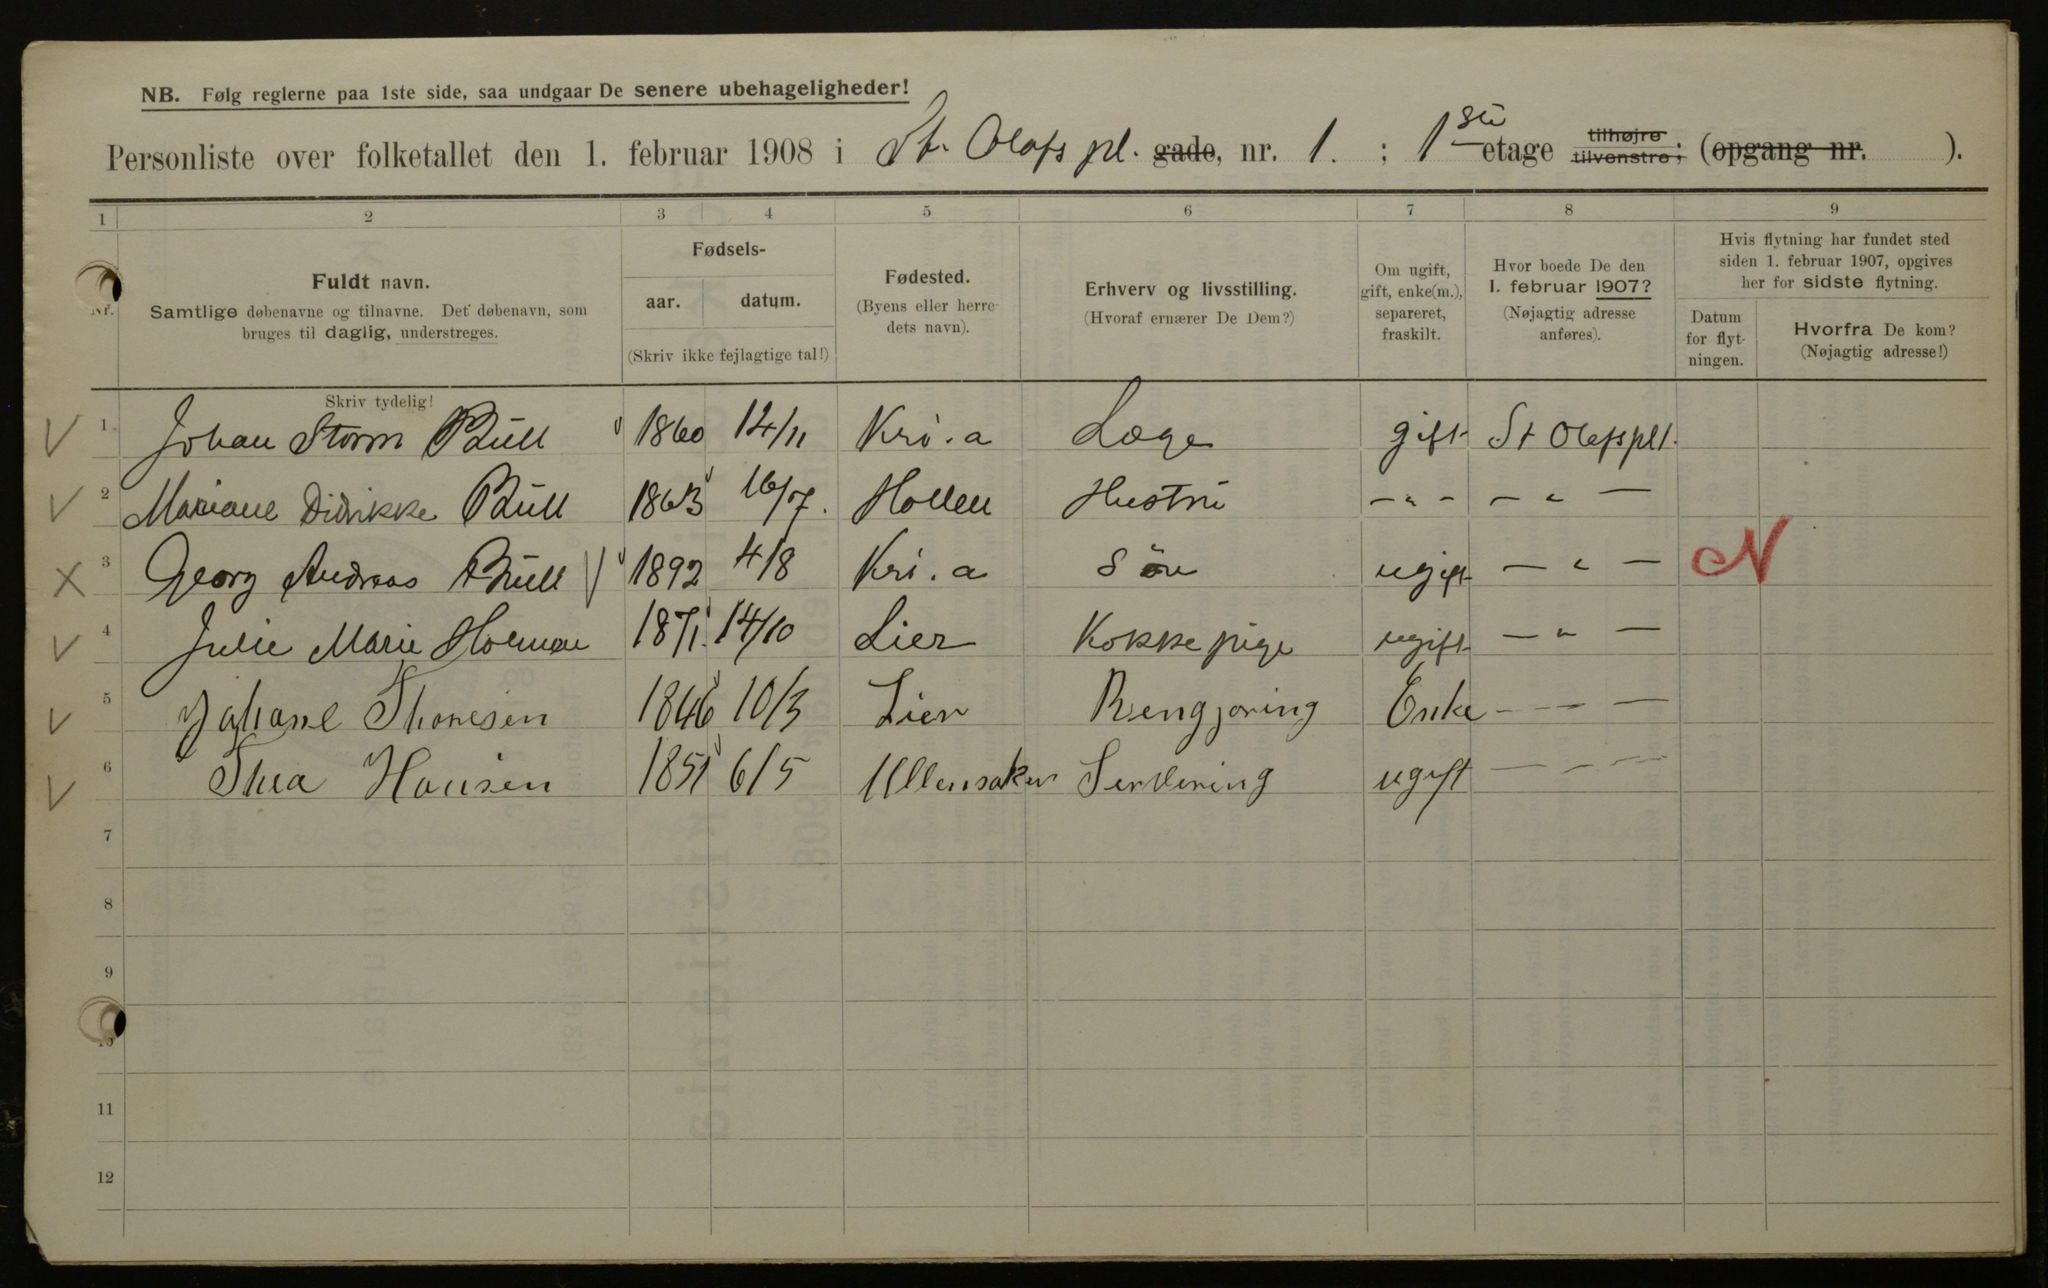 NB. Følg reglerne paa 1ste side, saa undgaar De senere ubehageligheder!
Personliste over folketallet den 1. februar 1908 i St. Olafs pl. gade, nr. 1. ; 1ste etage tilhøjre tilvenstre; (opgang nr. ).
1 2 3 4 5 6 7 8 9
Nr.
Fuldt navn.
Samtlige døbenavne og tilnavne. Det døbenavn, som
bruges til daglig, understreges.
Skriv tydelig!
Fødsels-
aar. datum.
(Skriv ikke fejlagtige tal!)
Fødested.
(Byens eller herre-
dets navn).
Erhverv og livsstilling.
(Hvoraf ernærer De Dem?)
Om ugift,
gift, enke(m.),
separeret,
fraskilt.
Hvor boede De den
1. februar 1907?
(Nøjagtig adresse
anføres).
Hvis flytning har fundet sted
siden 1. februar 1907, opgives
her for sidste flytning.
Datum
for flyt-
ningen.
Hvorfra De kom?
(Nøjagtig adresse!)
1 Johan Storm Bull 1860 14/11 Kri.a Læge gift St Olafspl 1.
2 Mariane Didrikke Bull 1863 16/7. Hollen Hustru — " — — " —
3 Georg Andreas Bull 1892 4/8 Kri.a Søn ugift — " — N
4 Julie Marie 1871. 14/10 Lier Kokkepige ugift — " —
5 Johane Thoresen 1846 10/3 Lier Rengjøring Enke — — —
6 Thea Hansen 1851 6/5 Ullensaker Servering ugift — — —
7
8
9
10
11
12